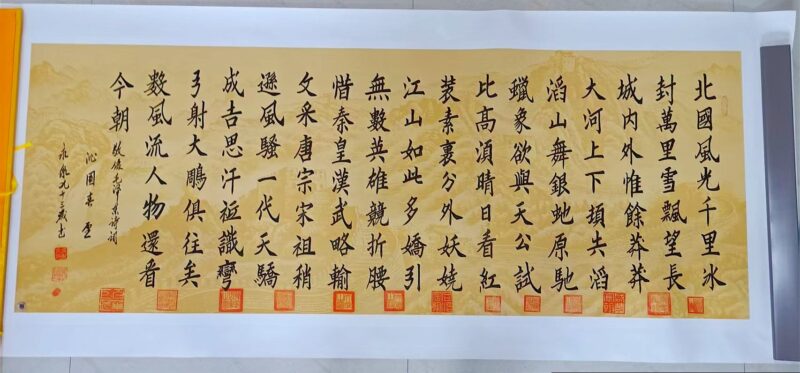 北國風光千里冰
封萬里雪飄望長
城内外惟餘莽莽
大河上下頓失滔
滔山舞銀虵原馳
蠟象欲與天公試
比高須晴日看紅
装素裹分外妖嬈
江山如此多嬌引
無數英雄競折腰
惜秦皇漢武略輸
文采唐宗宋祖稍
遜風騷一代天驕
成吉思汗祗識彎
弓射大鵰俱往矣
數風流人物還看
今朝
敬錄毛澤東詩詞
沁園春雪
九十三歲書